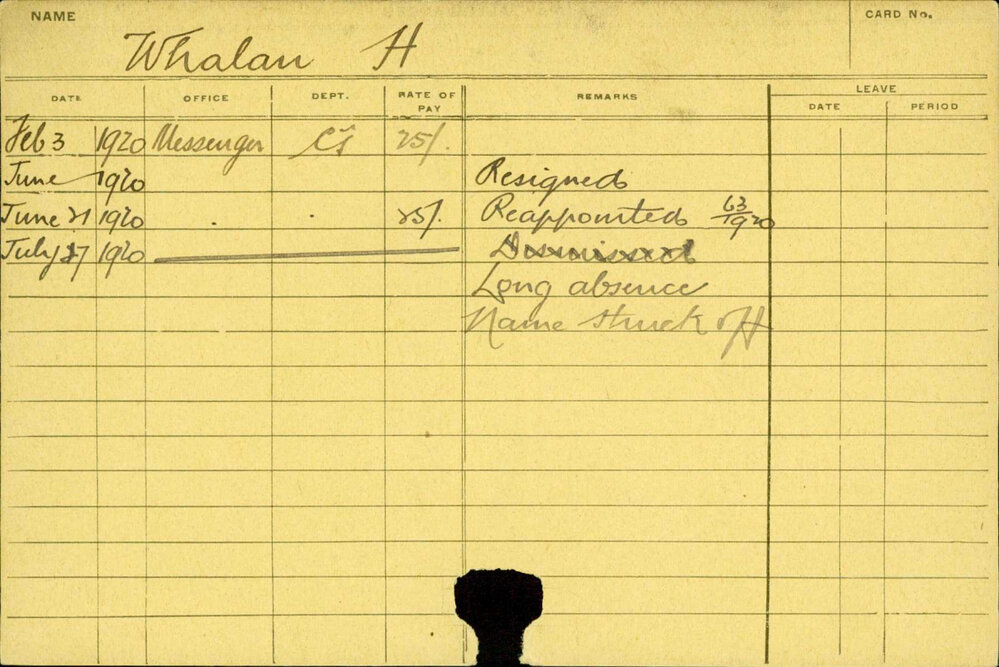 NAME
CARD No.
Whalan H
DATE OFFICE DEPT. RATE OF PAY REMARKS LEAVE
DATE PERIOD
Feb 3 1920 Messenger C's 25/.
June 1920 Resigned
June 21 1920 . . 25/. Reappointed 63/1920
July 27 1920 Dismissed
Long absence
Name struck off